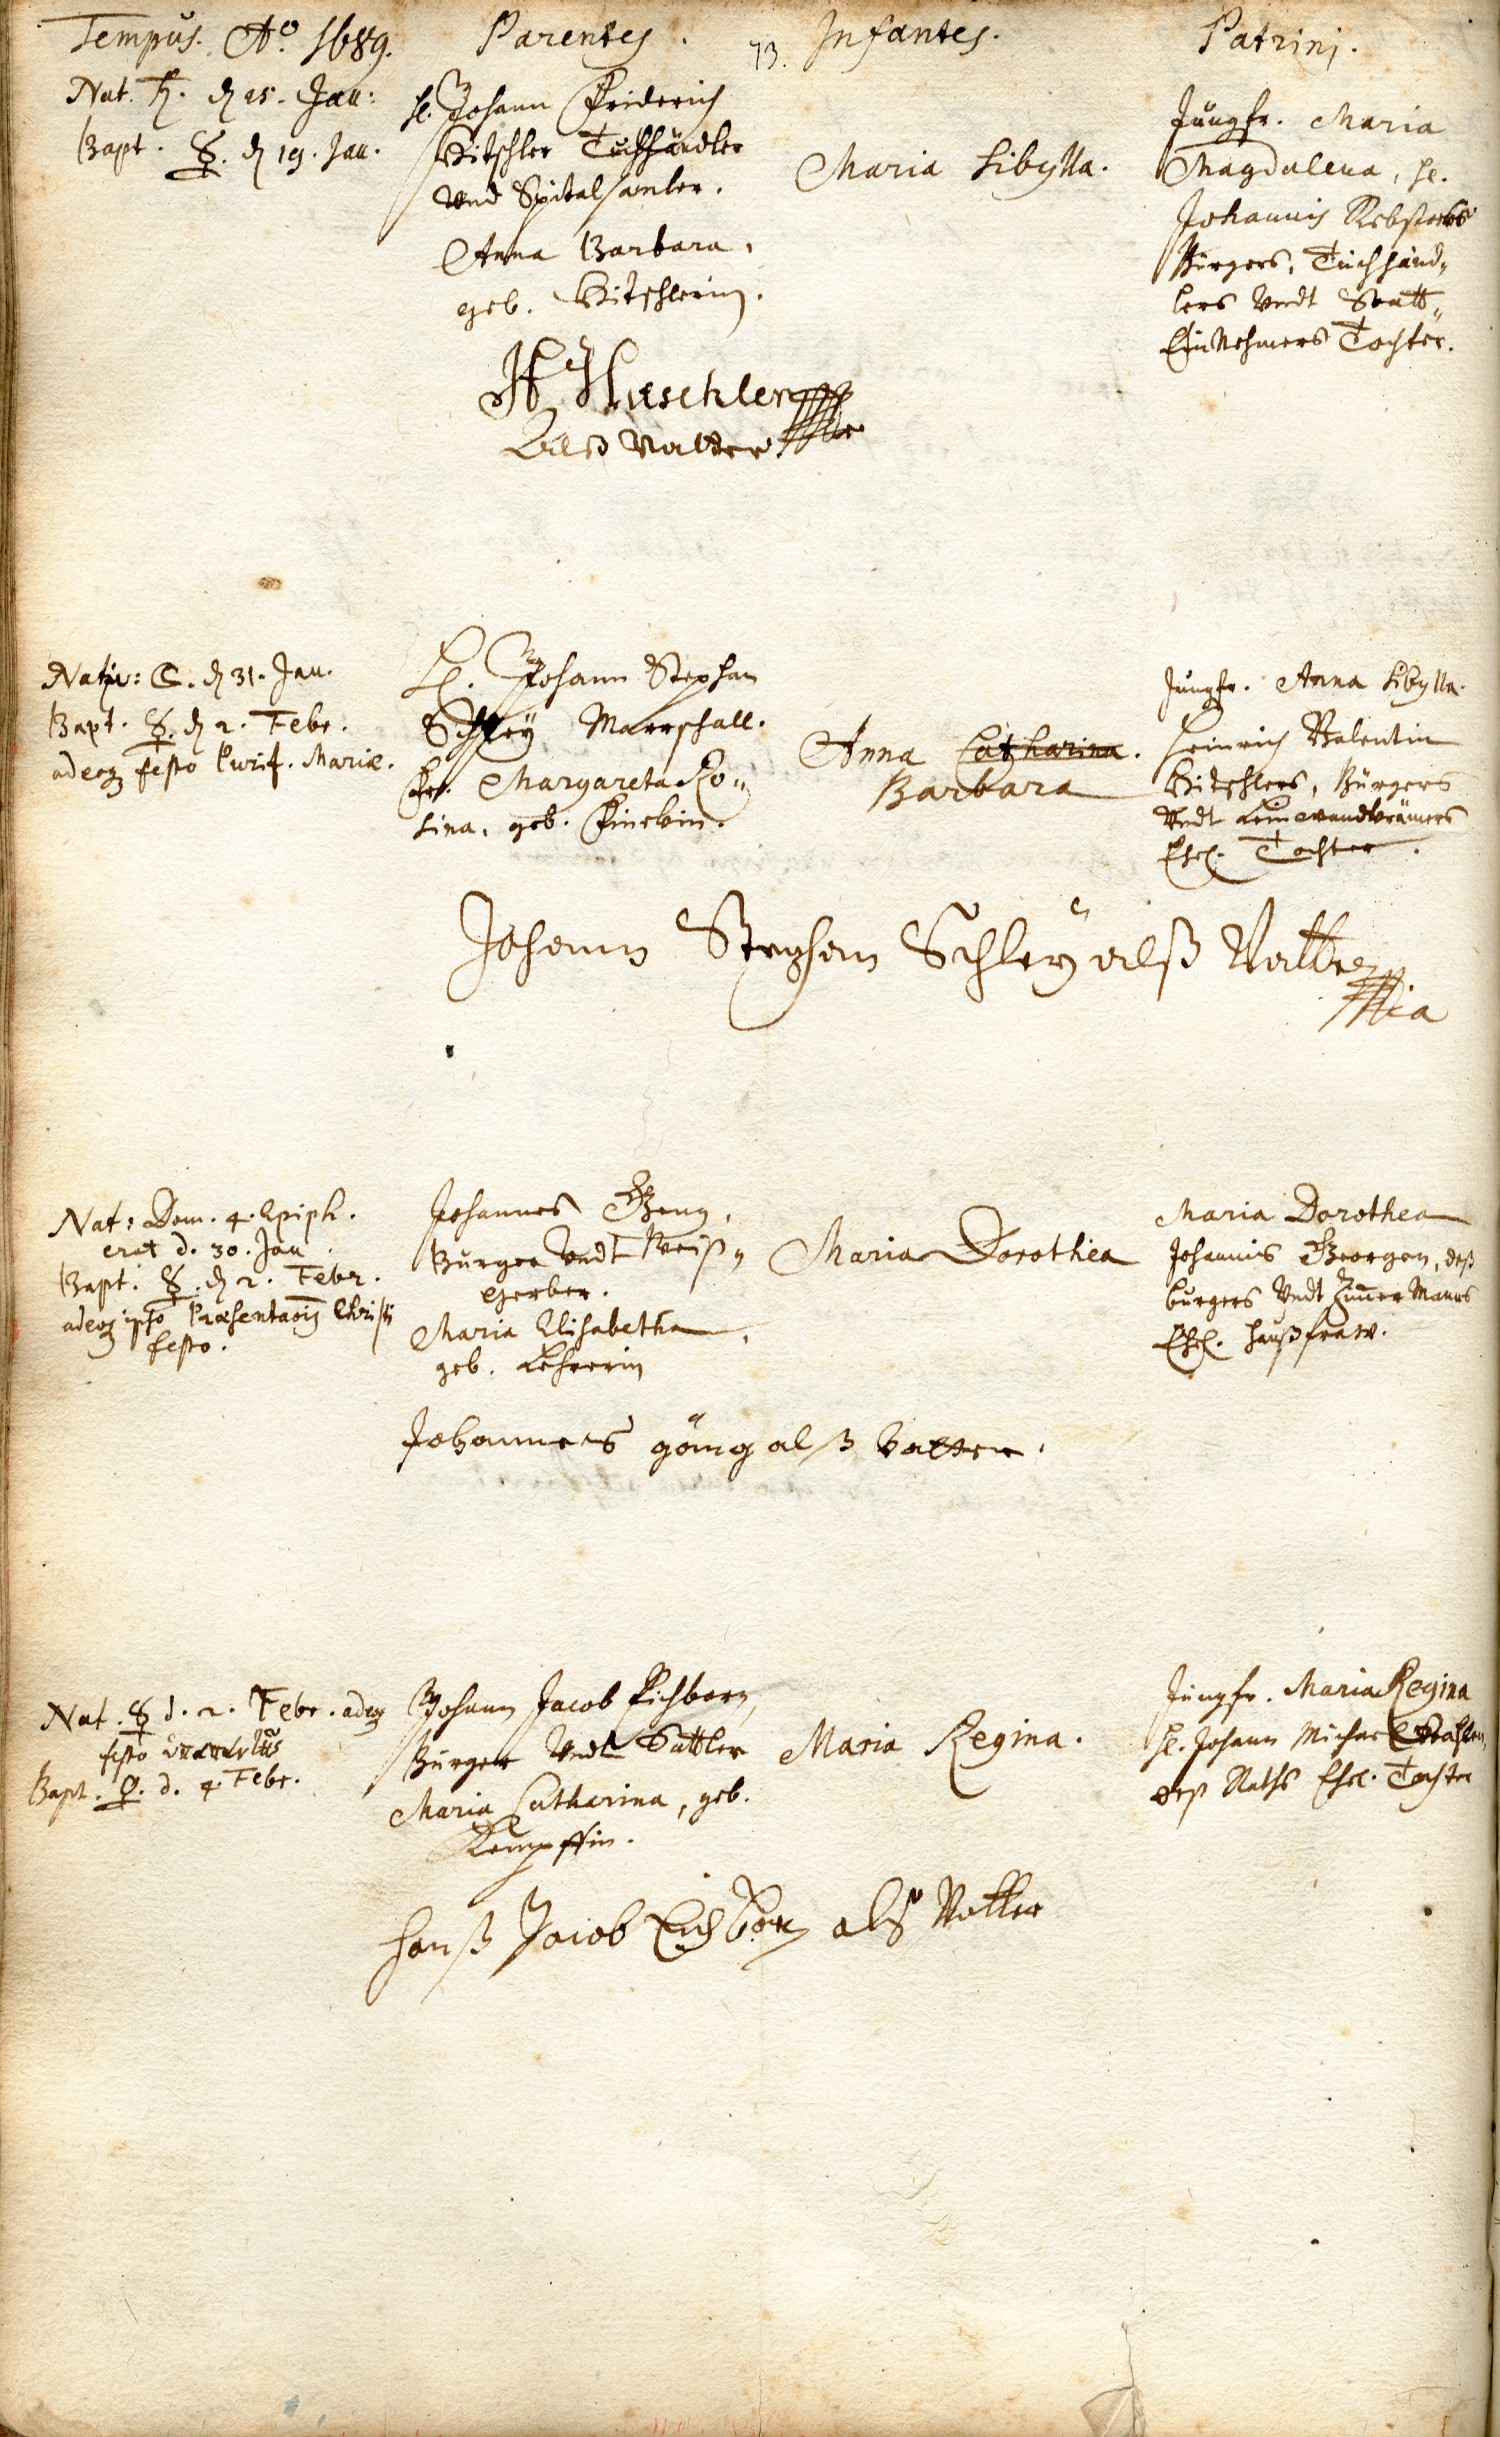 Tempus. Aº. 1689.
Parentes.
73.
Infantes.
Patrinj.
Nat. ♄. d 25. Jan:
Bapt. ☿. d 19. Jan.
H. Johann Friderich
Hitschler Tuchhändler
Vnd Spitalsamler.
Anna Barbara,
geb. Hitschlerin.
Maria Sibylla.
Jungfr. Maria
Magdalena, H.
Johannis Rebstocks
Bürgers, Tuchhänd„
lers Vndt Statt„
Einnehmers Tochter.
als Vatter
Nativ: ☾. d 31. Jan.
Bapt. ☿. d 2. Febr.
adeoq festo Purif. Mariæ.
H. Johann Stephan
Schley Marschall.
Fr. Margareta Ro„
sina, geb.
Anna Catharina.
Barbara
Jungfr. Anna Sibylla.
Heinrich Valentin
Hitschlers, Bürgers
Vndt Leinwandkrämers
Ehel. Tochter.
Johann Stephan Schleÿ alß Vatter
Nat: Dom. 4. Epiph.
erat d. 30. Jan.
Bapt. ☿. d 2. Febr.
adeoq ipso Præsentaõis Christi
festo.
Johannes Geng,
Burger Vndt Weiß„
gerber.
Maria Elisabetha,
geb. Lehrerin
Maria Dorothea
Maria Dorothea
Johannis Georgen, deß
burgers Vndt Zim̅er Manns
Ehel. Haußfraw.
Johannes göng alß Vatter.
Nat. ☿ d. 2. Febr. adeoq
festo
Bapt. ♀. d. 4. Febr.
Johann Jacob Eichborn,
Bürger Vndt Sattler
Maria Catharina, geb.
Kempffin.
Maria Regina.
Jungfr. Maria Regina
H. Johann Michael
deß Raths Ehel. Tochter
Hanß Jacob Eichborn alß Vatter